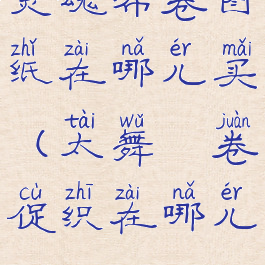 灵魂布卷图
zhǐ zài nǎ ér mǎi
纸在哪儿买
tài wǔ juàn
（太舞 卷
cù zhī zài nǎ ér
促织在哪儿